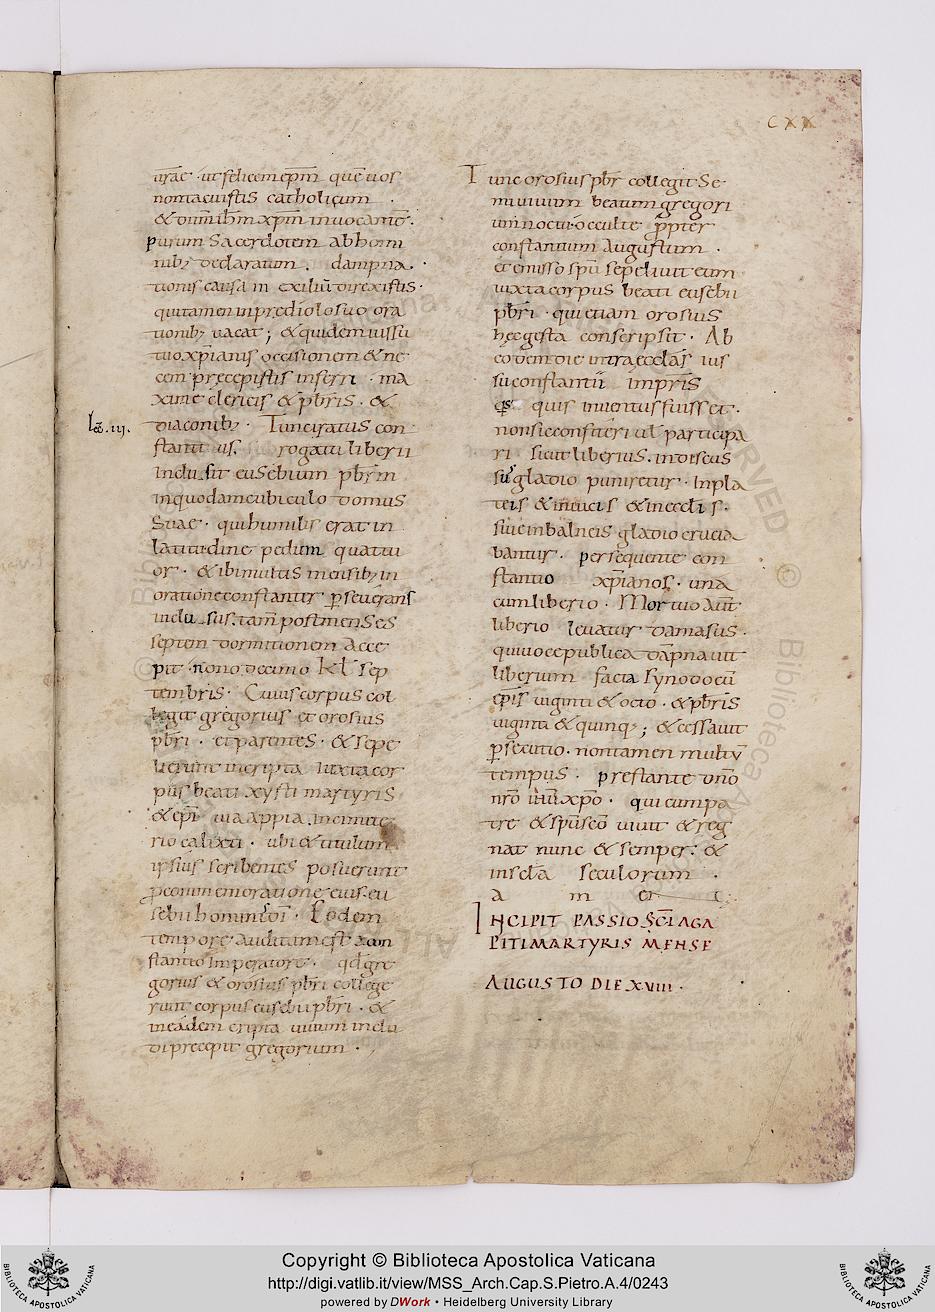 CXX
uṙae · ut felicem ep̄m que uos
nominauistis catholicum ·
& omnib; xp̄m inuocantē ·
purum Sacerdotem ab homi
nib; declaratum . dampna ·
tionis causa in exiliū direxistis ·
qui tamen in prediolo suo ora
tionib; uacat ; & quidem iussu
tuo xp̄ianis occisionem & ne
cem precepistis inferri · ma
xime clericis & pb̄ris · &
Lec̄ . iii .
diaconib; · Tunc iratus con
stantius . rogatu liberii
inclusit eusebium pb̄rm
in quodam cubiculo domus
Suae · qui humilis erat in
latitudine pedum quattu
or · & ibi multis mensib; in
oratione constanter p̄seuerans
inclusus . tam̄ post menses
septem dormitionem acce
pit · nono decimo Kl̄ Sep
tembris · Cuius corpus col
legit gregorius et orosius
pb̄ri . et parentes · & sepe
lierunt in cripta iuxta cor
pus beati xysti martyris
& ep̄i uia appia . in cimite
rio calixti · ubi & titulum
ipsius scribentes posuerunt
p̄ commemoratione eius . eu
sebii hominis dī · Eodem
tempore auditum est a con
stantio Imperatore · qd̄ gre
gorius & orosius pb̄ri college
runt corpus eusebii pb̄ri · &
in eadem cripta uiuum inclu
di precepit gregorium · ,
Tunc orosius pb̄r collegit Se
miuiuum beatum gregori
um noctu · occulte p̄pter
constantium Augustum ·
et emisso sp̄u sepeliuit eum
iuxta corpus beati eusebii
pb̄ri · qui etiam orosius
hec gesta conscripsit · Ab
eodem die intra ecclās ius
su constantii impr̄is
quis inuentus fuisset ·
non sic confiteri uł participa
ri sicut liberius . in discus
su gladio puniretur · In pla
teis & in uicis & in eccli s ·
siue in balneis gladio crucia
bantur · persequente con
stantio xp̄ianos · una
cum liberio · Mortuo aut̄
liberio leuatur damasus ·
qui uoce publica dāpnauit
liberium facta synodo cū
ep̄is uiginti & octo · & pb̄ris
uiginti & quinq; ; & cessauit
p̄secutio . non tamen multū
tempus · prestante dn̄o
nr̄o ih̄u xp̄o · qui cum pa
tre & sp̄u sc̄o uiuit & reg
nat nunc & semper : &
in sc̄la seculorum ·
a m e n :
INCIPIT PASSIO SC̄I AGA
PITI MARTYRIS MENSE
AUGUSTO DIE XVIII ·
Copyright © Biblioteca Apostolica Vaticana
http://digi.vatlib.it/view/MSS_Arch.Cap.S.Pietro.A.4/0243
powered by DWork • Heidelberg University Library